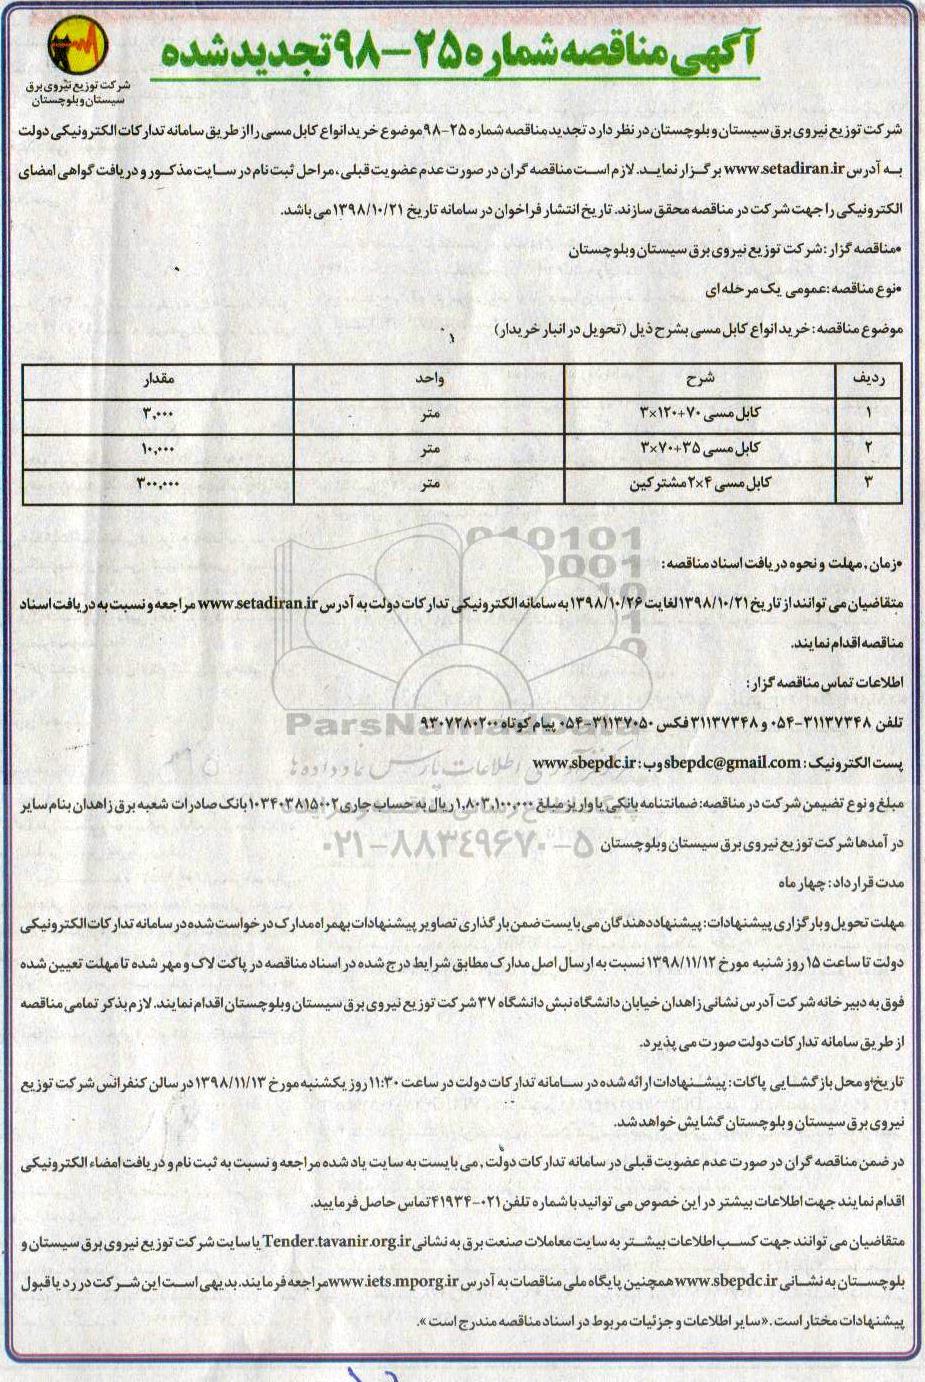 آگهی مناقصه شماره ۲۵-۹۸ تجدید شده
شرکت توزیع نیروی برق
سیستان و بلوچستان
شرکت توزیع نیروی برق سیستان و بلوچستان در نظر دارد تجدید مناقصه شماره ۲۵-۹۸ موضوع خرید انواع کابل مسی را از طریق سامانه تدارکات الکترونیکی دولت
به آدرس www.setadiran.ir برگزار نماید. لازم است مناقصه گران در صورت عدم عضویت قبلی، مراحل ثبت نام در سایت مذکور و دریافت گواهی امضای
الکترونیکی را جهت شرکت در مناقصه محقق سازند. تاریخ انتشار فراخوان در سامانه تاریخ ۱۳۹۸/۱۰/۲۱ می باشد.
•مناقصه گزار: شرکت توزیع نیروی برق سیستان و بلوچستان
•نوع مناقصه: عمومی یک مرحله ای
موضوع مناقصه: خرید انواع کابل مسی بشرح ذیل (تحویل در انبار خریدار)
ردیف شرح واحد مقدار
۱ کابل مسی ۷۰+۱۲۰×۳ متر ۳,۰۰۰
۲ کابل مسی ۳۵+۷۰×۳ متر ۱۰,۰۰۰
۳ کابل مسی ۴×۲ مشترکین متر ۳۰۰,۰۰۰
•زمان، مهلت و نحوه دریافت اسناد مناقصه:
متقاضیان می توانند از تاریخ ۱۳۹۸/۱۰/۲۱ لغایت ۱۳۹۸/۱۰/۲۶ به سامانه الکترونیکی تدارکات دولت به آدرس www.setadiran.ir مراجعه و نسبت به دریافت اسناد
مناقصه اقدام نمایند.
اطلاعات تماس مناقصه گزار:
تلفن ۳۱۱۳۷۳۴۸-۰۵۴ و ۳۱۱۳۷۳۴۸ فکس ۳۱۱۳۷۰۵۰-۰۵۴ پیام کوتاه ۹۳۰۷۲۸۰۲۰۰
پست الکترونیک: sbepdc@gmail.com وب: www.sbepdc.ir
مبلغ و نوع تضمین شرکت در مناقصه: ضمانتنامه بانکی یا واریز مبلغ ۱,۸۰۳,۱۰۰,۰۰۰ ریال به حساب جاری ۱۰۳۴۰۳۸۱۵۰۰۲ بانک صادرات شعبه برق زاهدان بنام سایر
درآمدها شرکت توزیع نیروی برق سیستان و بلوچستان
مدت قرارداد: چهار ماه
مهلت تحویل و بارگزاری پیشنهادات: پیشنهاددهندگان می بایست ضمن بارگذاری تصاویر پیشنهادات بهمراه مدارک درخواست شده در سامانه تدارکات الکترونیکی
دولت تا ساعت ۱۵ روز شنبه مورخ ۱۳۹۸/۱۱/۱۲ نسبت به ارسال اصل مدارک مطابق شرایط درج شده در اسناد مناقصه در پاکت لاک و مهر شده تا مهلت تعیین شده
فوق به دبیرخانه شرکت آدرس نشانی زاهدان خیابان دانشگاه نبش دانشگاه ۳۷ شرکت توزیع نیروی برق سیستان و بلوچستان اقدام نمایند. لازم بذکر تمامی مناقصه
از طریق سامانه تدارکات دولت صورت می پذیرد.
تاریخ و محل بازگشایی پاکات: پیشنهادات ارائه شده در سامانه تدارکات دولت در ساعت ۱۱:۳۰ روز یکشنبه مورخ ۱۳۹۸/۱۱/۱۳ در سالن کنفرانس شرکت توزیع
نیروی برق سیستان و بلوچستان گشایش خواهد شد.
در ضمن مناقصه گران در صورت عدم عضویت قبلی در سامانه تدارکات دولت، می بایست به سایت یاد شده مراجعه و نسبت به ثبت نام و دریافت امضاء الکترونیکی
اقدام نمایند جهت اطلاعات بیشتر در این خصوص می توانید با شماره تلفن ۰۲۱-۴۱۹۳۴ تماس حاصل فرمایید.
متقاضیان می توانند جهت کسب اطلاعات بیشتر به سایت معاملات صنعت برق به نشانی Tender.tavanir.org.ir یا سایت شرکت توزیع نیروی برق سیستان و
بلوچستان به نشانی www.sbepdc.ir همچنین پایگاه ملی مناقصات به آدرس www.iets.mporg.ir مراجعه فرمایند. بدیهی است این شرکت در رد یا قبول
پیشنهادات مختار است. «سایر اطلاعات و جزئیات مربوط در اسناد مناقصه مندرج است».
ParsNamadData
۰۲۱-۸۸۳۴۹۶۷۰-۵